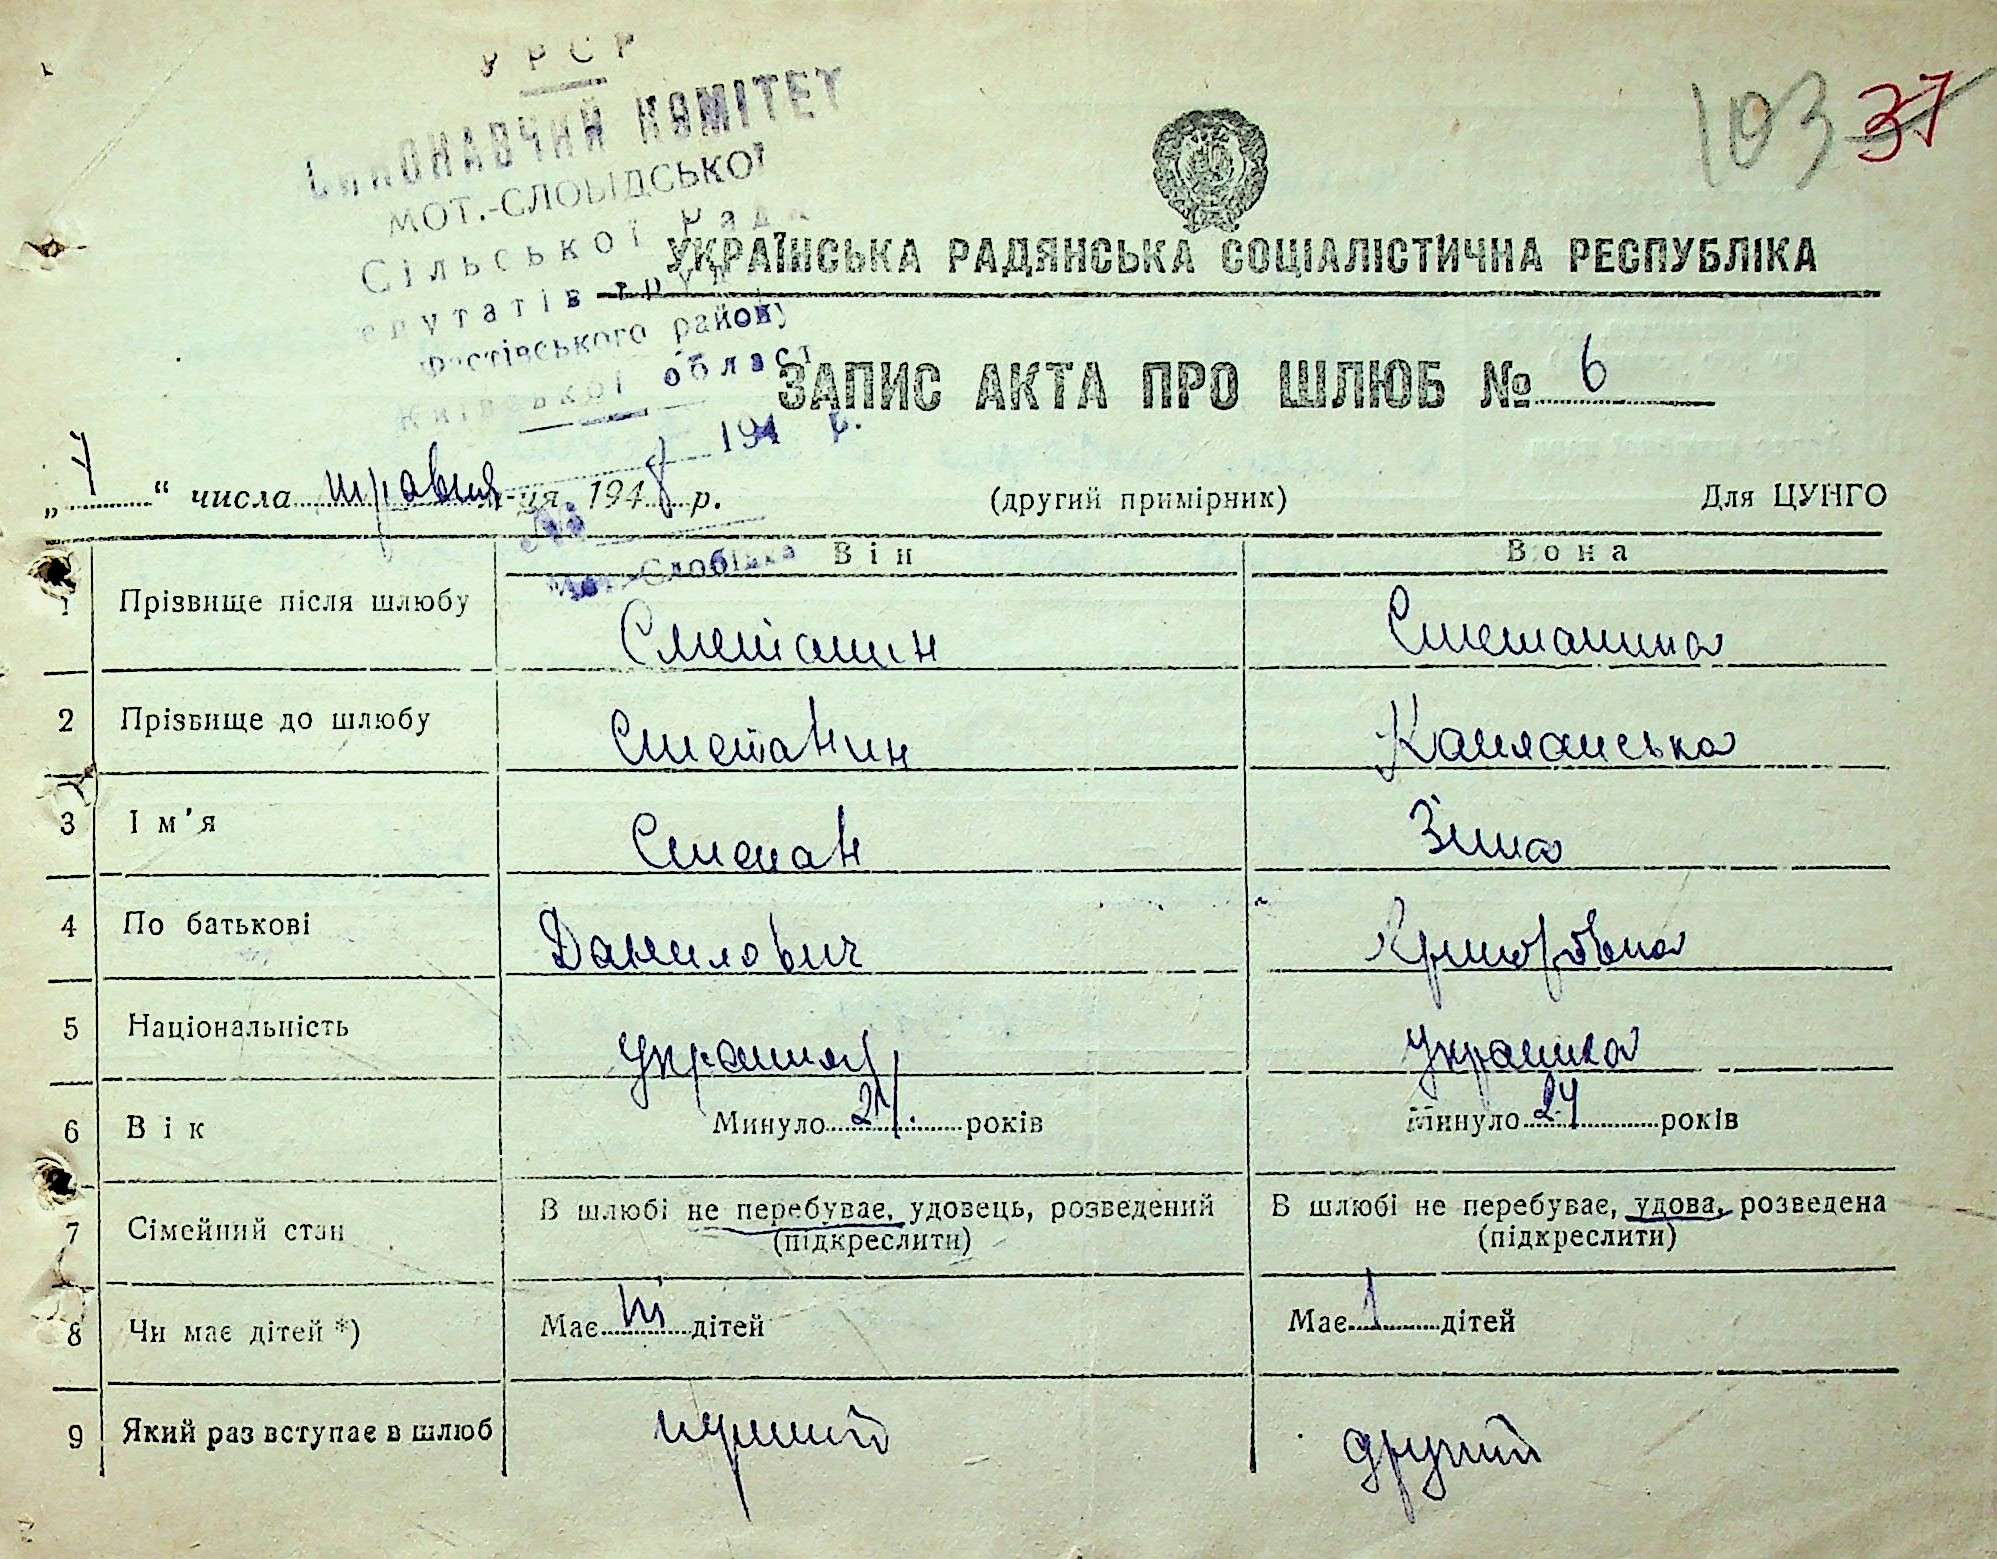 УРСР
ВИКОНАВЧИЙ КОМІТЕТ
МОТ.-СЛОБІДСЬКОЇ
Сільської Ради
депутатів труд
Фастівського району
Київської област
194 р.
Мот-Слобідка
103 37
УКРАЇНСЬКА РАДЯНСЬКА СОЦІАЛІСТИЧНА РЕСПУБЛІКА
ЗАПИС АКТА ПРО ШЛЮБ № 6
„ “ числа травня м-ця 1948 р. (другий примірник) Для ЦУНГО
Він Вона
1 Прізвище після шлюбу Сметанин Сметанина
2 Прізвище до шлюбу Сметанин
3 Ім'я Степан Зіна
4 По батькові Данилович Григоровна
5 Національність
6 Вік Минуло 24 років Минуло 24 років
7 Сімейний стан В шлюбі не перебуває, удовець, розведений В шлюбі не перебуває, удова, розведена
(підкреслити) (підкреслити)
8 Чи має дітей *) Має ні дітей Має 1 дітей
9 Який раз вступає в шлюб перший другий